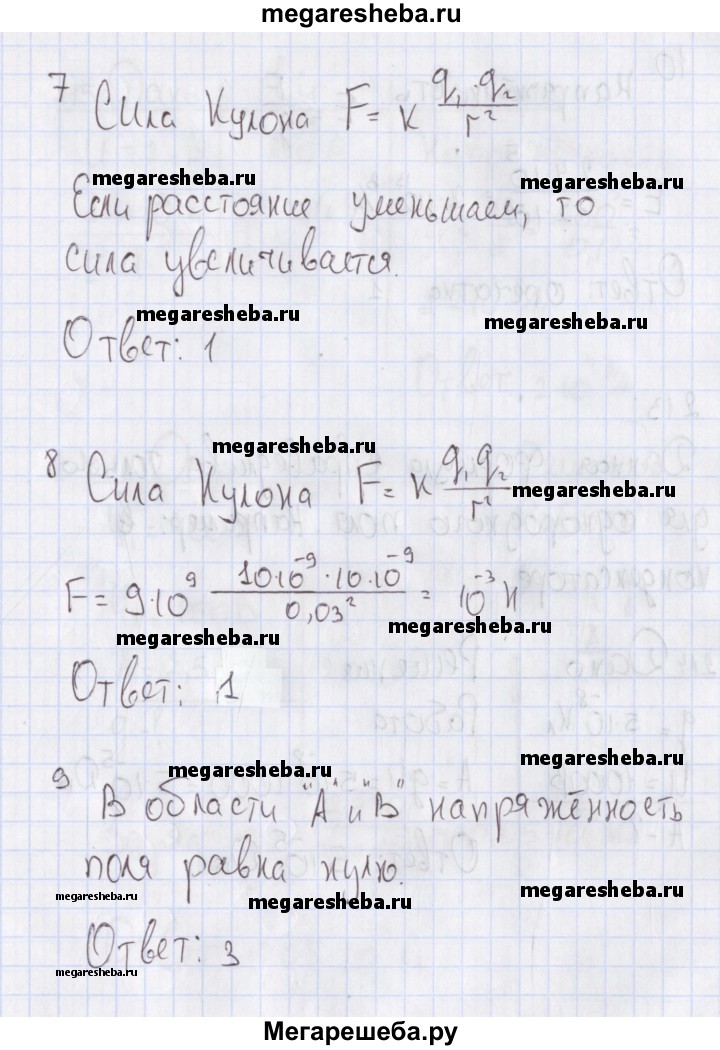 megaresheba.ru
7 Сила Кулона F = к q₁ q₂ / r²
megaresheba.ru
megaresheba.ru
Если расстояние уменьшаем, то
сила увеличивается.
megaresheba.ru
megaresheba.ru
Ответ: 1
megaresheba.ru
8 Сила Кулона F = к q₁ q₂ / r²
megaresheba.ru
F = 9·10⁹ 10·10⁻⁹·10·10⁻⁹ / 0,03² = 10⁻³ Н
megaresheba.ru
megaresheba.ru
Ответ: 1
megaresheba.ru
megaresheba.ru
9 В области "А" и "В" напряжённость
поля равна нулю.
megaresheba.ru
megaresheba.ru
megaresheba.ru
Ответ: 3
megaresheba.ru
Мегарешеба.ру